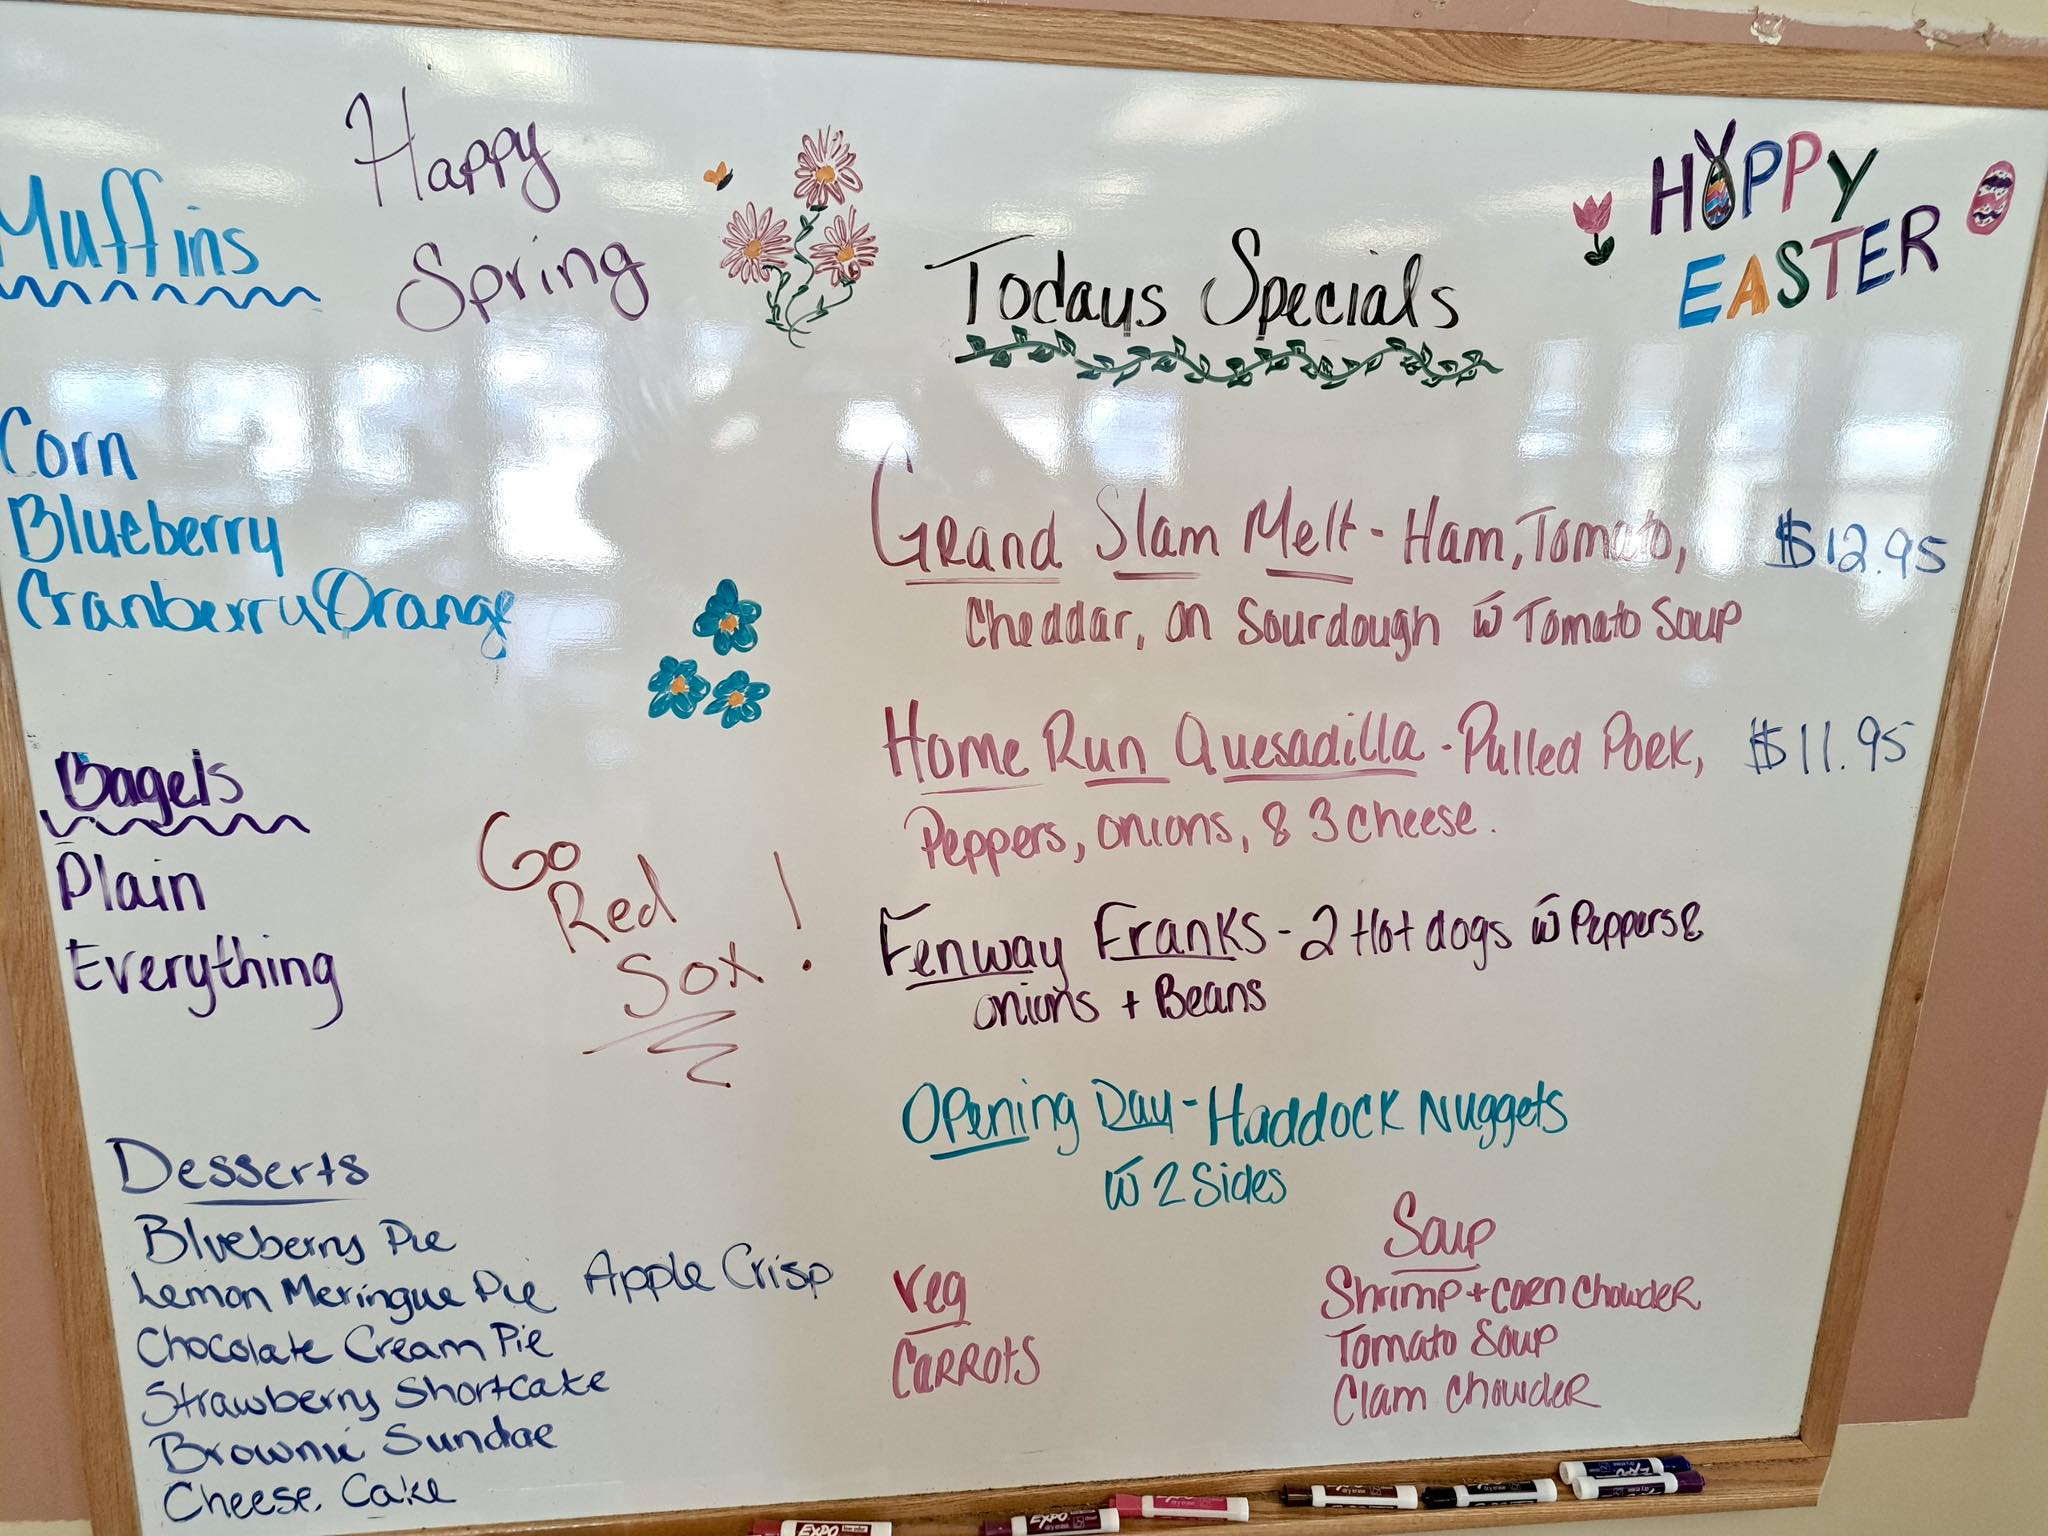 Happy
Spring
Muffins
Corn
Blueberry
Cranberry Orange
Bagels
Plain
Everything
Go
Red
Sox!
Desserts
Blueberry Pie
Lemon Meringue Pie
Apple Crisp
Chocolate Cream Pie
Strawberry Shortcake
Brownie Sundae
Cheese Cake
HAPPY
EASTER
Todays Specials
Grand Slam Melt - Ham, Tomato, $12.95
Cheddar, on Sourdough w̄ Tomato Soup
Home Run Quesadilla - Pulled Pork, $11.95
Peppers, onions, & 3 cheese.
Fenway Franks - 2 Hot dogs w̄ Peppers &
onions + Beans
Opening Day - Haddock Nuggets
w̄ 2 Sides
Veg
Carrots
Soup
Shrimp + corn Chowder
Tomato Soup
Clam Chowder
EXPO
EXPO